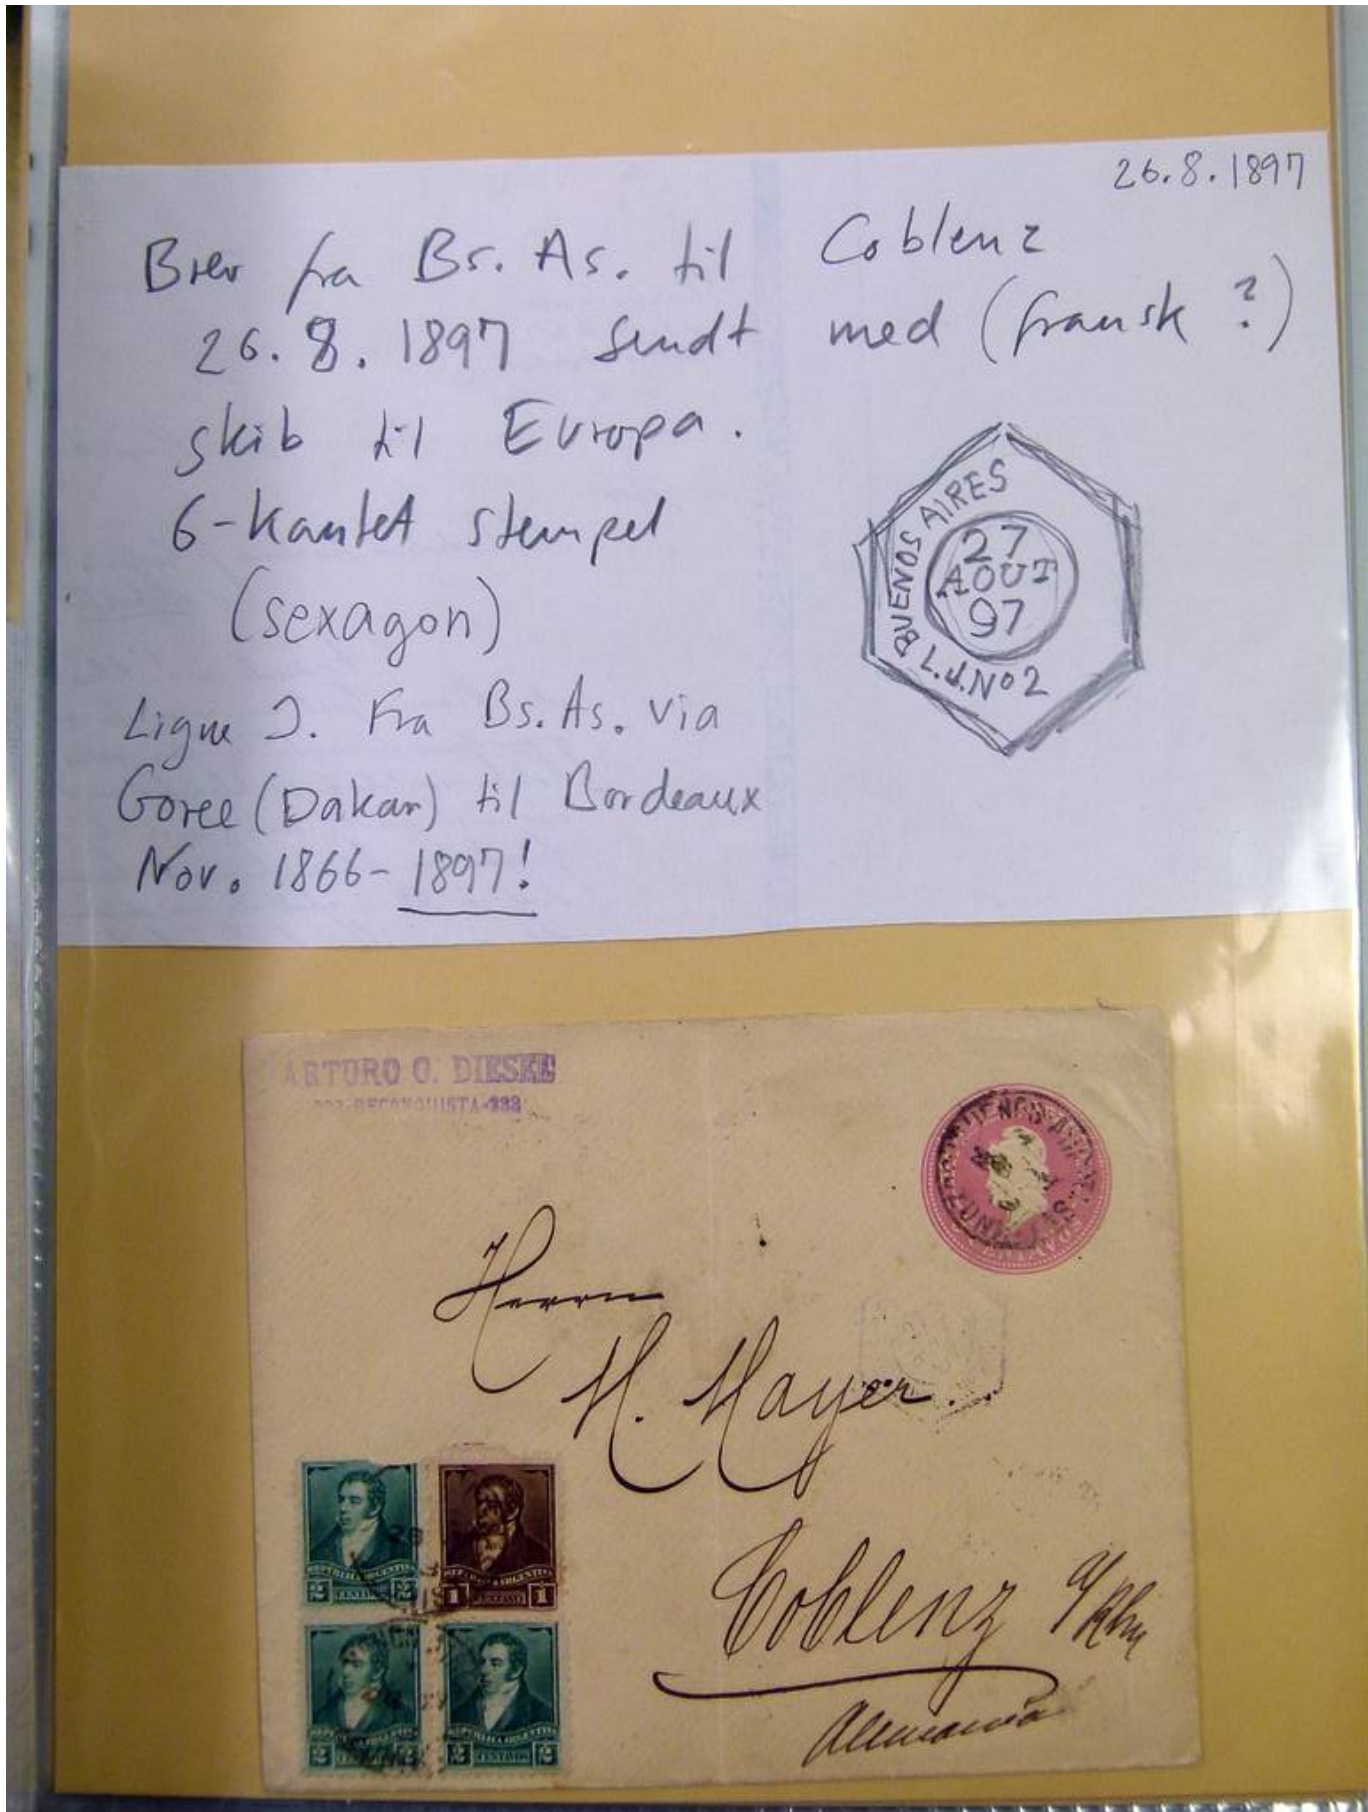 26.8.1897
Brev fra Bs. As. til Coblenz
26.8.1897 sendt med (fransk ?)
skib til Europa.
6-kantet stempel
(sexagon)
BUENOS AIRES
27
AOUT
97
L.J.No2
Ligne J. Fra Bs. As. via
Goree (Dakar) til Bordeaux
Nov. 1866-1897!
ARTURO C. DIESEL
RECONQUISTA-333
BUENOS AIRES
Herrn
M. Mayer.
Coblenz a/Rhn
Alemania
REPUBLICA ARGENTINA
2 CENTAVOS 2
REPUBLICA ARGENTINA
1 CENTAVO 1
REPUBLICA ARGENTINA
2 CENTAVOS 2
REPUBLICA ARGENTINA
2 CENTAVOS 2